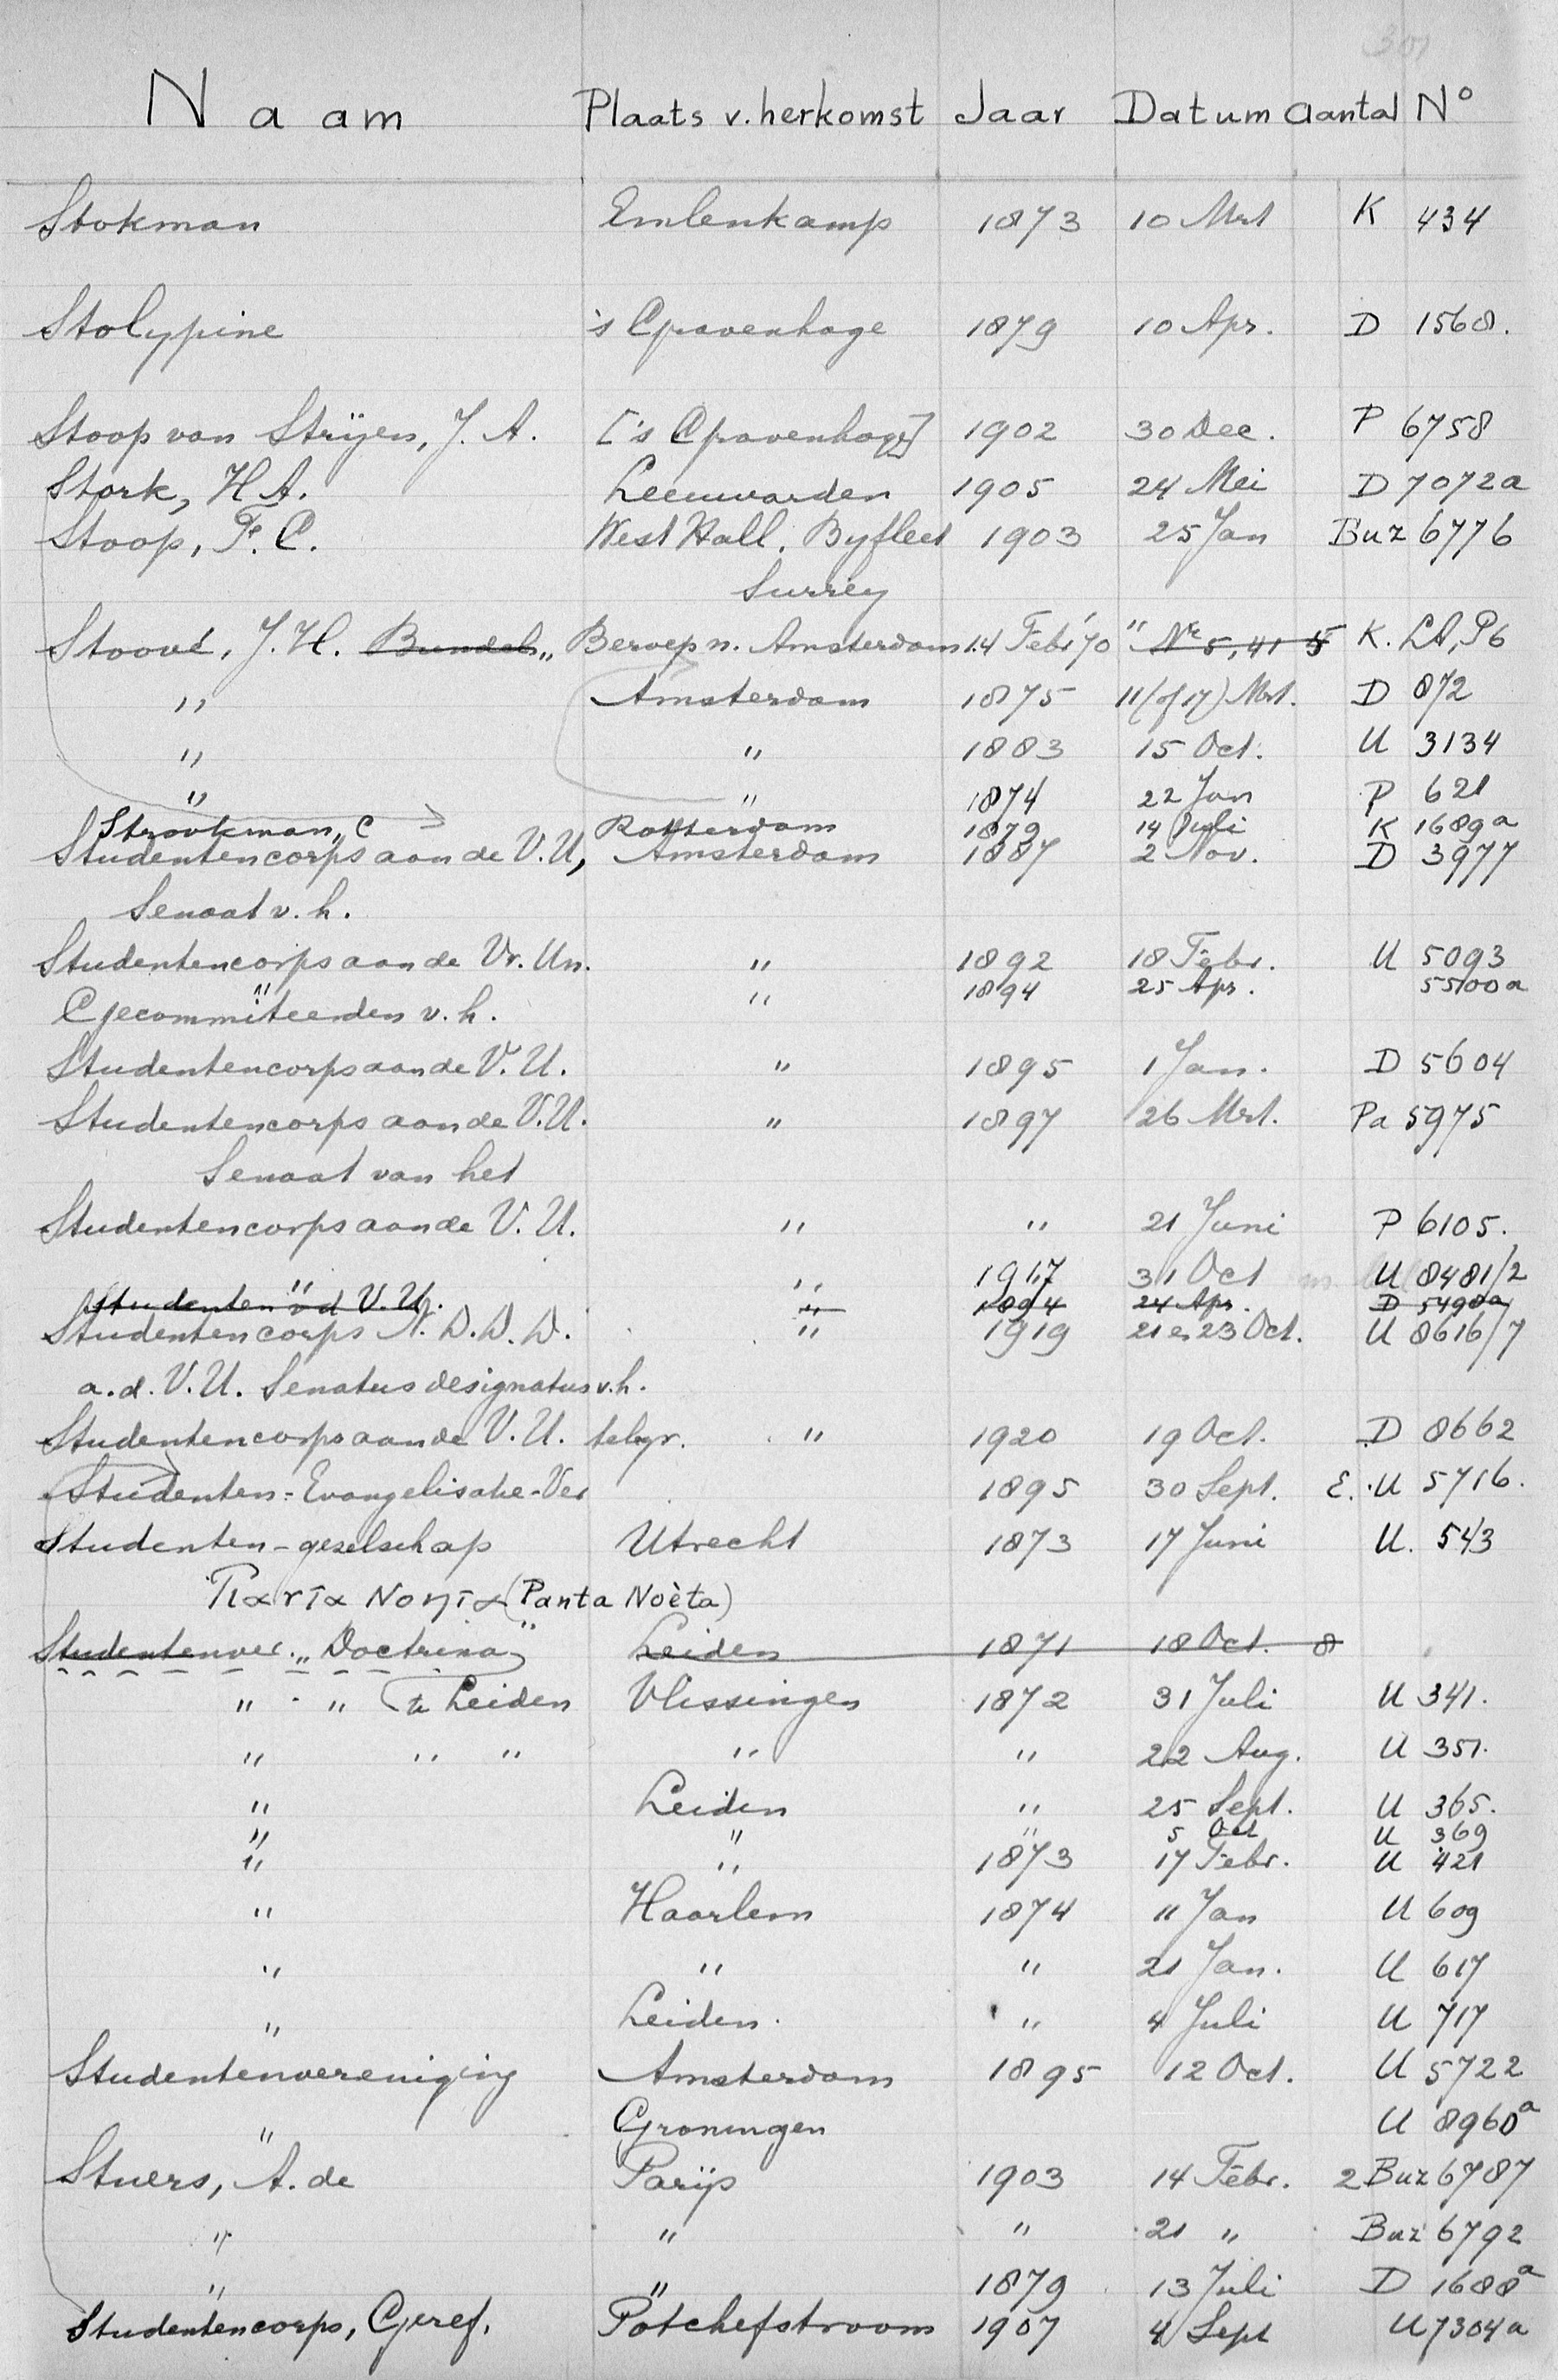 301
Naam Plaats v. herkomst Jaar Datum aantal N°
Stokman Emlenkamp 1873 10 Mrt K 434
Stolypine 's Gravenhage 1879 10 Apr. D 1568.
Stoop van Strijen, J. A. ['s Gravenhage] 1902 30 Dec. P 6758
Stork, H A. Leeuwarden 1905 24 Mei D 7072a
Stoop, F. C. West Hall. Byfleet 1903 25 Jan Buz 6776
Surrey
Stoové, J. H. Bundel „ Beroep n. Amsterdam 14 Febr '70 " Nr 5, 41 5 K. LA, P6
" Amsterdam 1875 11 (of 17) Mrt. D 872
" " 1883 15 Oct. U 3134
" " 1874 22 Jan P 621
Strookman, C Rotterdam 1879 14 Juli K 1689a
Studentencorps aan de V. U, Amsterdam 1887 2 Nov. D 3977
Senaat v. h.
Studentencorps aan de Vr. Un. " 1892 18 Febr. U 5093
" " 1894 25 Apr. 5500a
Gecommiteerden v. h.
Studentencorps aan de V. U. " 1895 1 Jan. D 5604
Studentencorps aan de V. U. " 1897 26 Mrt. Pa 5975
Senaat van het
Studentencorps aan de V. U. " " 21 Juni P 6105.
" " 1917 31 Oct U 8481/2
Studenten v d V. U. " 1894 24 Apr. D 5498a
Studentencorps N. D. D. D. " 1919 21 en 23 Oct. U 8616/7
a. d. V. U. Senatus designatus v. h.
Studentencorps aan de V. U. telegr. " 1920 19 Oct. D 8662
Studenten-Evangelisatie-Ver 1895 30 Sept. E. U 5716.
Studenten-gezelschap Utrecht 1873 17 Juni U. 543
Παντα Νοητα (Panta Noèta)
Studentenver. „Doctrina" Leiden 1871 18 Oct. 8
" " te Leiden Vlissingen 1872 31 Juli U 341.
" " " " " 22 Aug. U 351.
" Leiden " 25 Sept. U 365.
" " " 5 Oct U 369
" " 1873 17 Febr. U 421
" Haarlem 1874 11 Jan U 609
" " " 21 Jan. U 617
" Leiden. " 4 Juli U 717
Studentenvereniging Amsterdam 1895 12 Oct. U 5722
" Groningen U 8960a
Stuers, A. de Parijs 1903 14 Febr. 2 Buz 6787
" " " 21 " Buz 6792
" " 1879 13 Juli D 1688a
Studentencorps, Geref. Potchefstroom 1907 4 Sept U 7304a